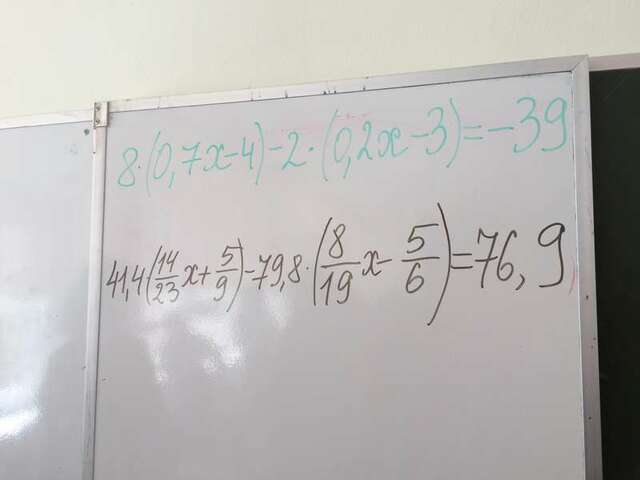 8·(0,7x-4)-2·(0,2x-3)=-39
41,4(14/23 x+5/9)-79,8·(8/19 x-5/6)=76,9